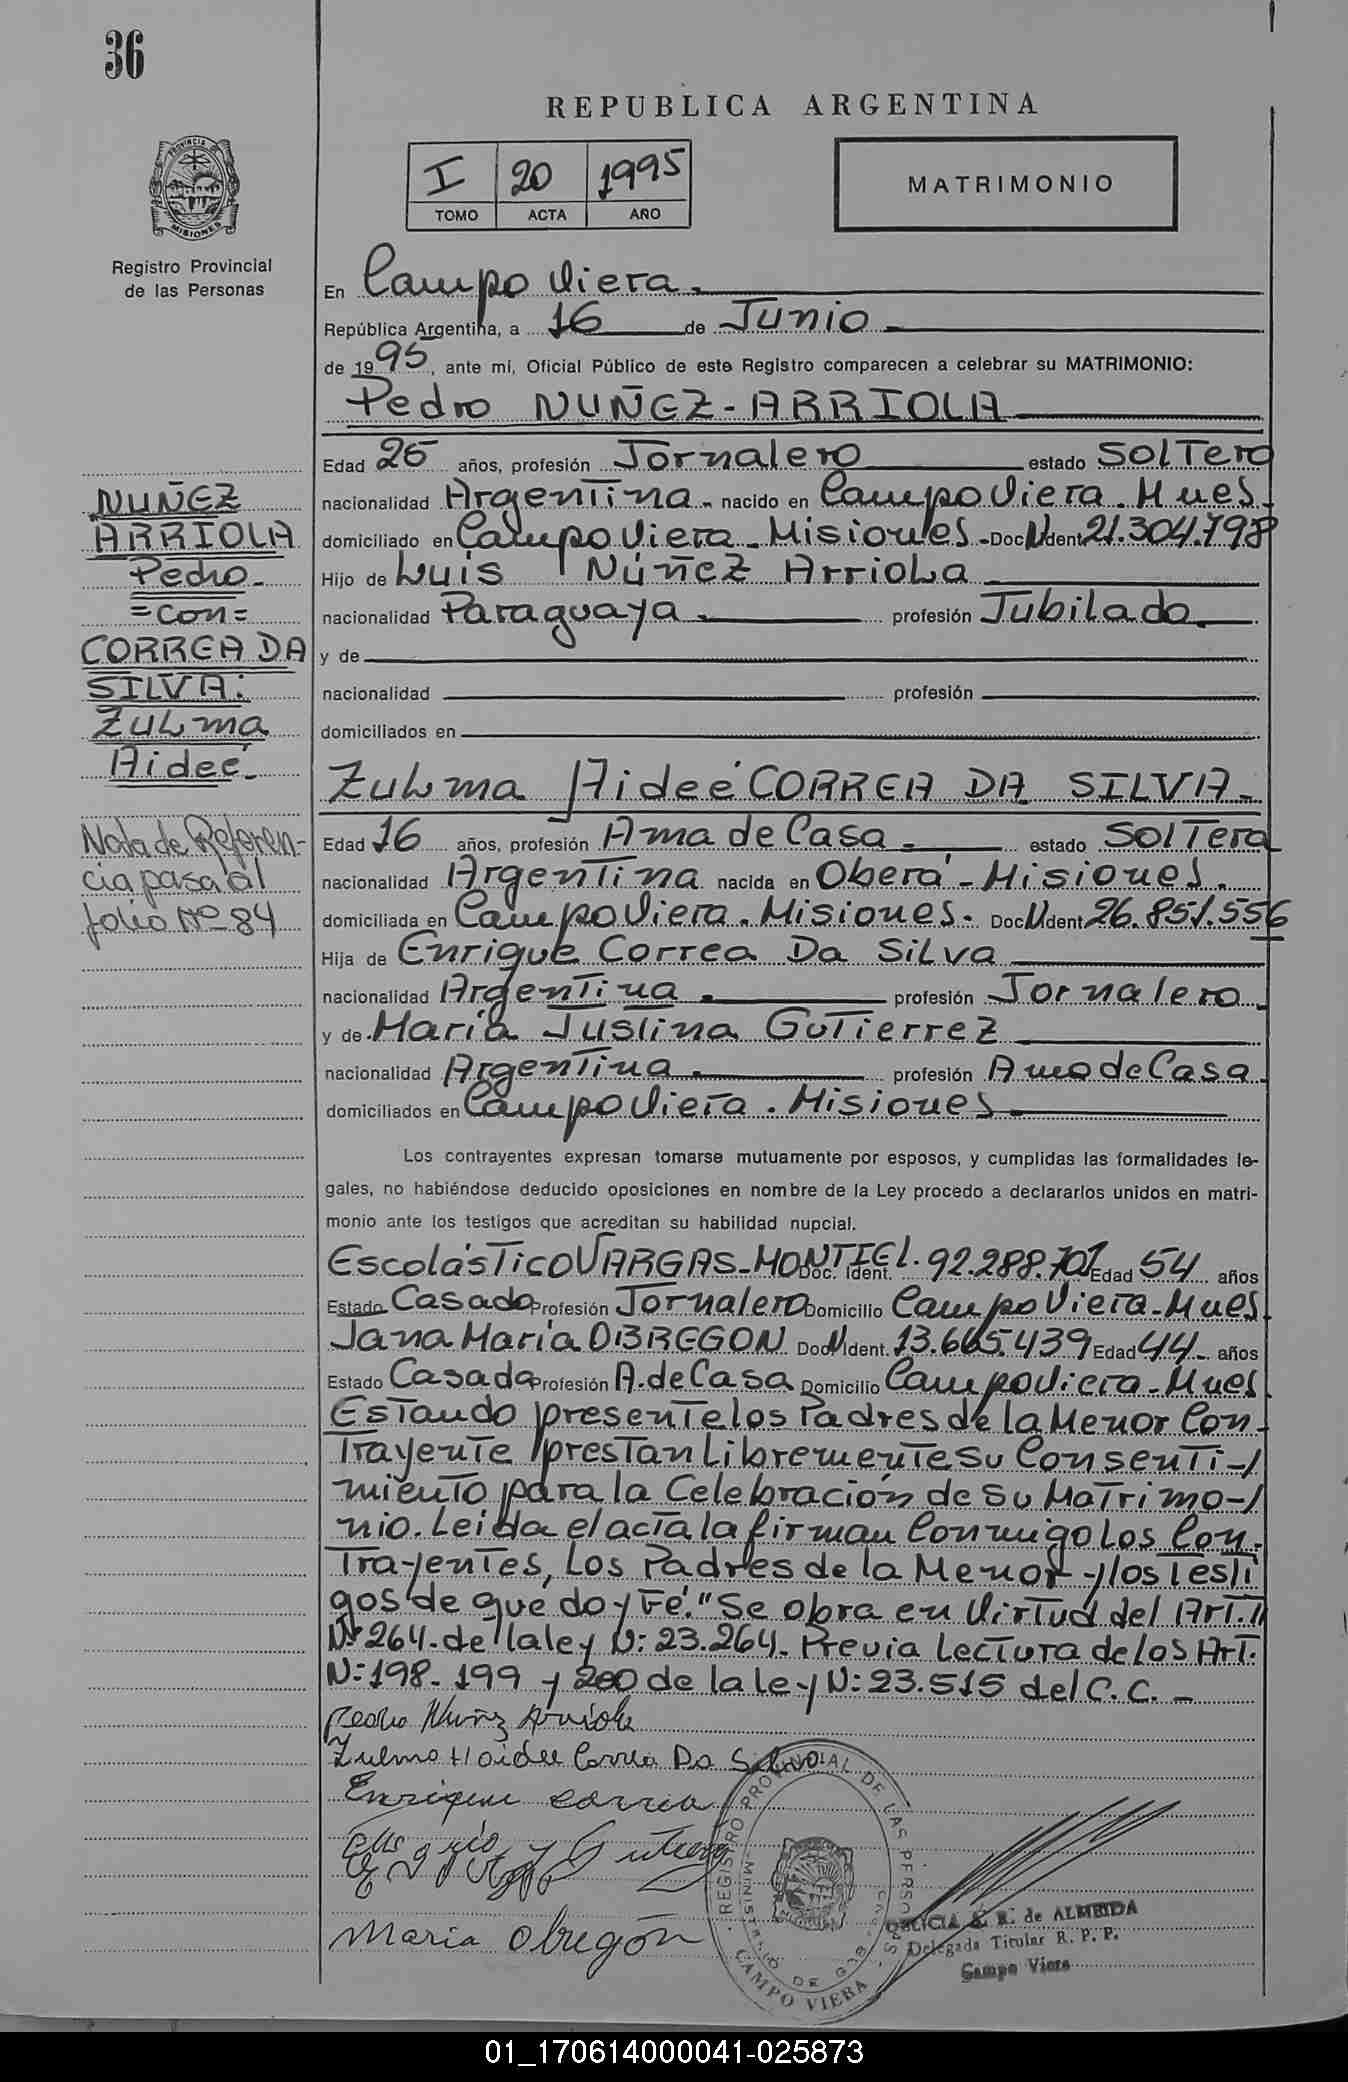 36
REPUBLICA ARGENTINA
I 20 1995
TOMO ACTA AÑO
MATRIMONIO
PROVINCIA DE MISIONES
Registro Provincial
de las Personas
En Campo Viera.
República Argentina, a 16 de Junio
de 1995, ante mi, Oficial Público de este Registro comparecen a celebrar su MATRIMONIO:
Pedro NUÑEZ-ARRIOLA
Edad 25 años, profesión Jornalero estado Soltero
nacionalidad Argentina. nacido en Campo Viera. Mnes.
domiciliado en Campo Viera. Misiones. Doc N Ident 21.304.798
Hijo de Luis Núñez Arriola
nacionalidad Paraguaya. profesión Jubilado.
y de
nacionalidad profesión
domiciliados en
NUÑEZ
ARRIOLA
Pedro.
=con=
CORREA DA
SILVA:
Zulma
Aideé.
Zulma Aideé CORREA DA SILVA.
Edad 16 años, profesión Ama de Casa. estado Soltera
nacionalidad Argentina nacida en Oberá - Misiones.
domiciliada en Campo Viera. Misiones. Doc N Ident 26.851.556
Hija de Enrique Correa Da Silva
nacionalidad Argentina. profesión Jornalero.
y de María Justina Gutierrez
nacionalidad Argentina. profesión Ama de Casa.
domiciliados en Campo Viera. Misiones
Nota de Referen-
cia pasa al
folio Nº 84
Los contrayentes expresan tomarse mutuamente por esposos, y cumplidas las formalidades le-
gales, no habiéndose deducido oposiciones en nombre de la Ley procedo a declararlos unidos en matri-
monio ante los testigos que acreditan su habilidad nupcial.
Escolástico VARGAS-MONTIEL. Doc. Ident. 92.288.701 Edad 54 años
Estado Casado Profesión Jornalero Domicilio Campo Viera-Mnes.
Jana María OBREGON Doc N Ident. 13.665.439 Edad 44- años
Estado Casada Profesión A. de Casa Domicilio Campo Viera-Mnes.
Estando presente los Padres de la Menor Con-
trayente prestan Libremente su Consenti-/
miento para la Celebración de su Matrimo-/
nio. Leida el acta la firman Conmigo Los Con-
trayentes, Los Padres de la Menor y los Testi
gos de que doy Fé." Se obra en Virtud del Art.//
Nº 264. de la ley N: 23.264. Previa Lectura de los Art.
N: 198. 199 y 200 de la ley N: 23.515 del C.C. -
Pedro Nuñez Arriola
Zulma Haidee Correa Da Silva
Enrique correa
Gutierrez
Maria Obregón
REGISTRO PROVINCIAL DE LAS PERSONAS
MINISTERIO DE GOB.
CAMPO VIERA
DELICIA R. de ALMEIDA
Delegada Titular R. P. P.
Campo Viera
01_170614000041-025873